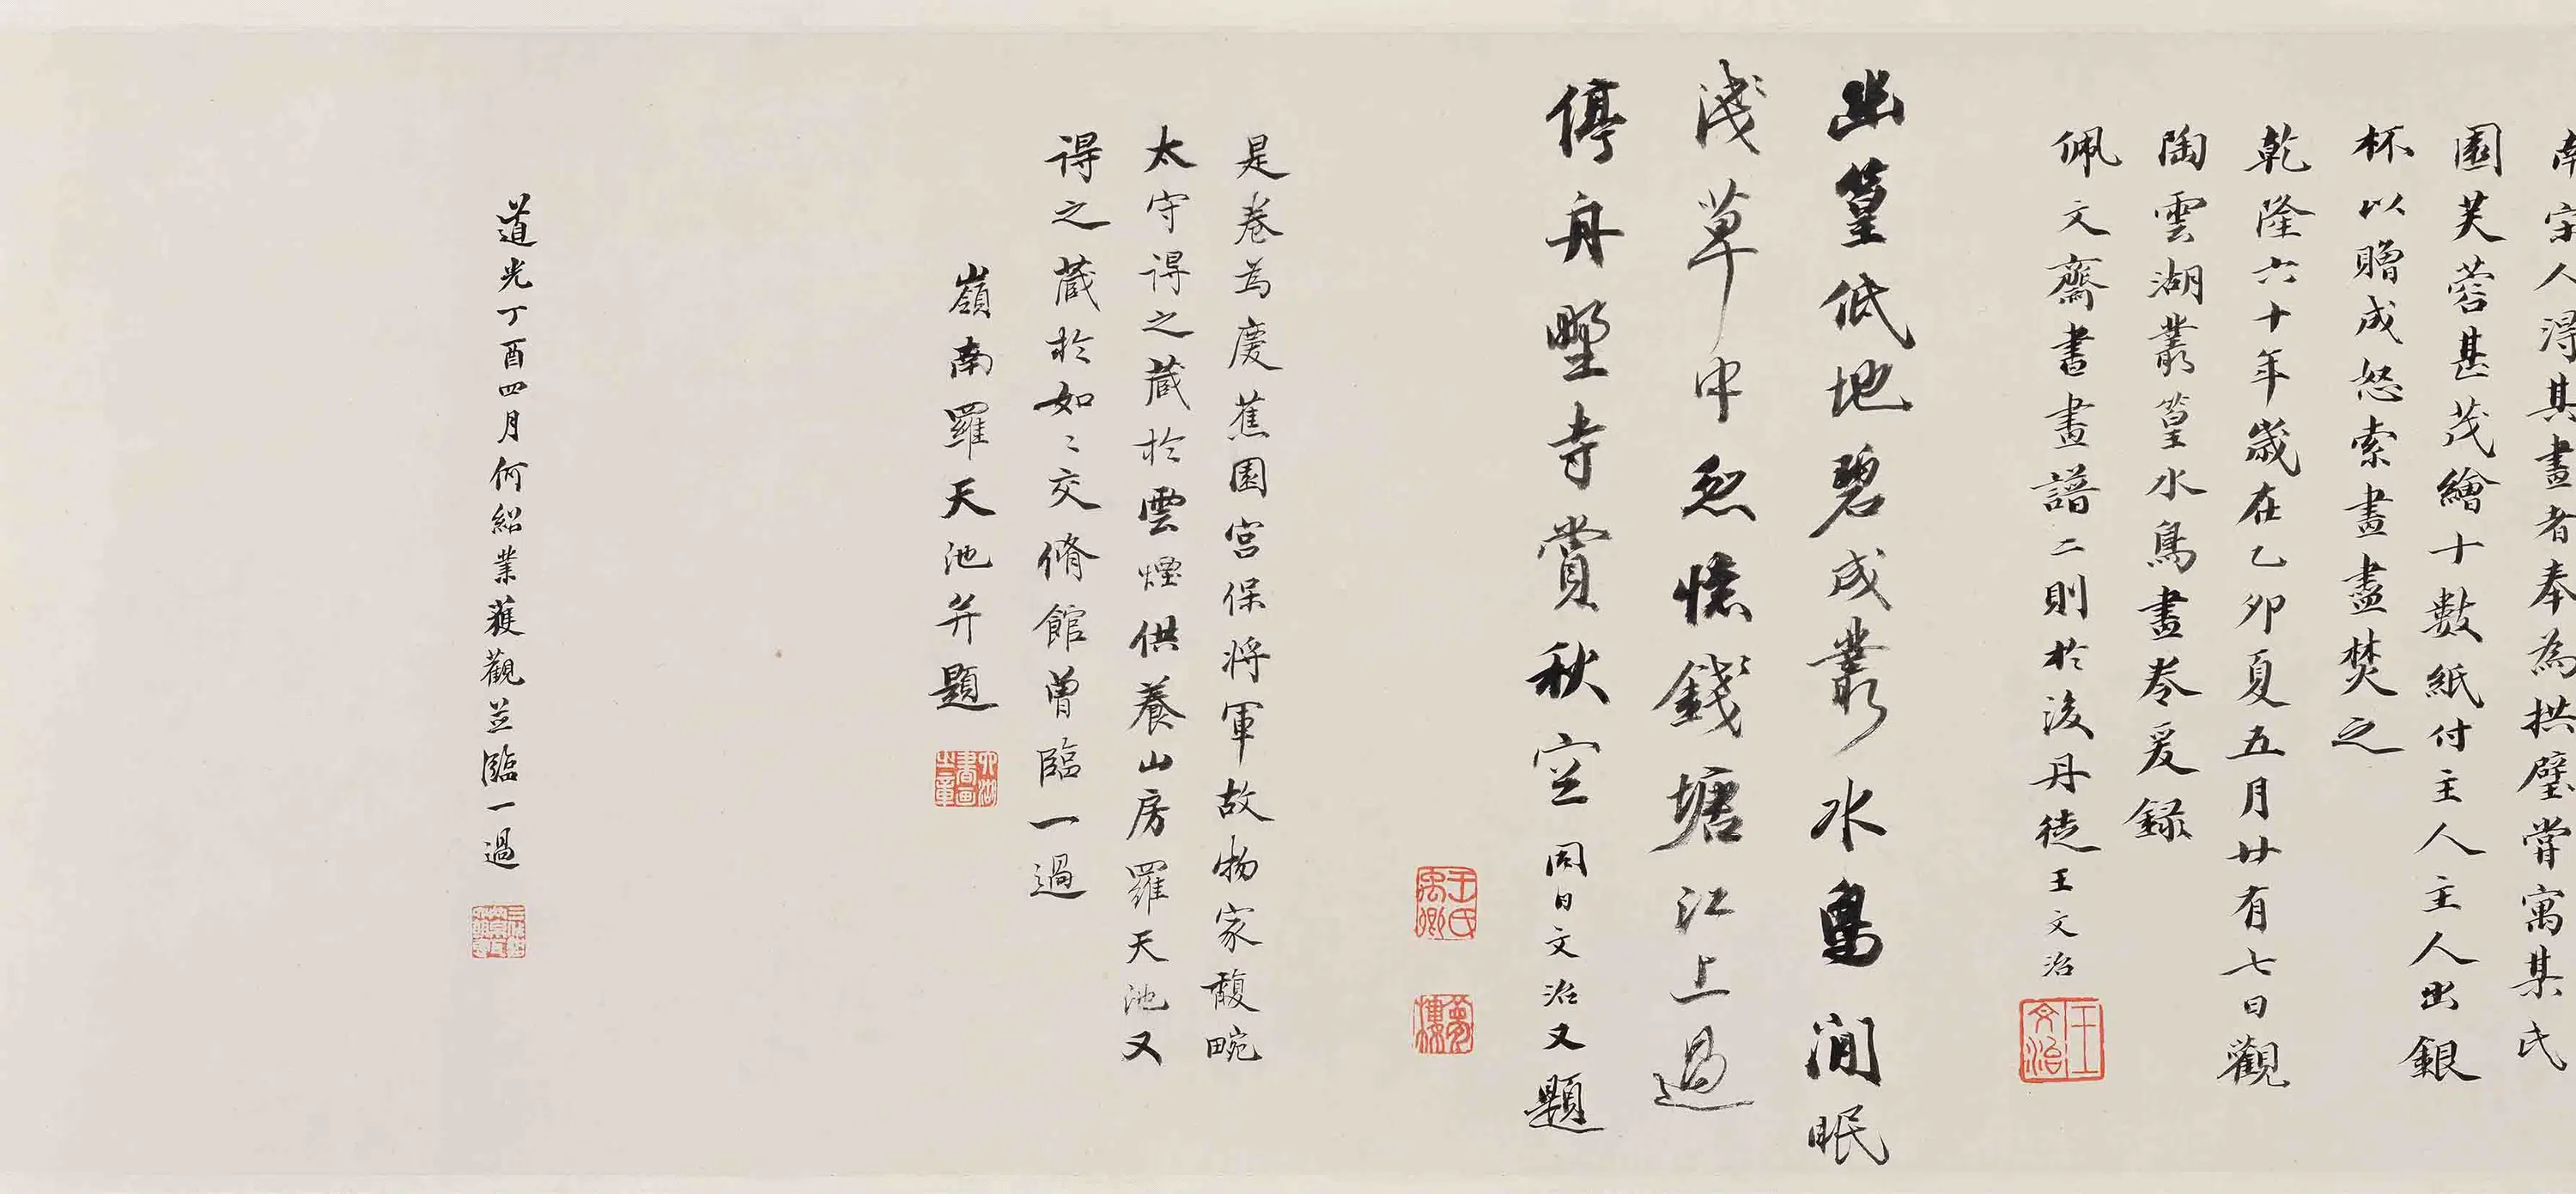 南宋人得其畫者奉為拱璧嘗寓某氏
園芙蓉甚茂繪十數紙付主人主人出銀
杯以贈成怒索畫盡焚之
乾隆六十年歲在乙卯夏五月廿有七日觀
陶雲湖叢篁水鳥畫卷爰錄
佩文齋書畫譜二則於後丹徒王文治
王文治
幽篁低地碧成叢水鳥閒眠
淺草中忽憶錢塘江上過
停舟野寺賞秋空同日文治又題
王氏禹卿
夢樓
是卷為慶蕉園宮保將軍故物家馥畹
太守得之藏於雲煙供養山房羅天池又
得之藏於如〻交脩館曾臨一過
嶺南羅天池并題
六湖書畫之章
道光丁酉四月何紹業獲觀並臨一過